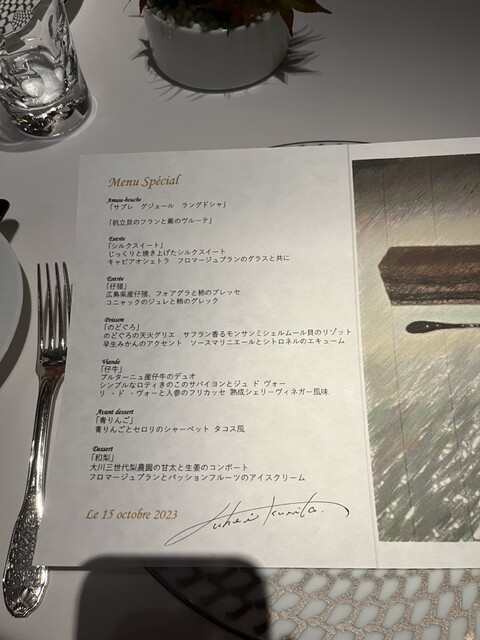 Menu Spécial
Amuse-bouche
「サブレ グジェール ラングドシャ」
「帆立貝のフランと蕪のヴルーテ」
Entrée
「シルクスイート」
じっくりと焼き上げたシルクスイート
キャビアオシェトラ フロマージュブランのグラスと共に
Entrée
「仔猪」
広島県産仔猪、フォアグラと柿のプレッセ
コニャックのジュレと柿のグレック
Poisson
「のどぐろ」
のどぐろの天火グリエ サフラン香るモンサンミシェルムール貝のリゾット
早生みかんのアクセント ソースマリニエールとシトロネルのエキューム
Viande
「仔牛」
ブルターニュ産仔牛のデュオ
シンプルなロティきのこのサバイヨンとジュ ド ヴォー
リ・ド・ヴォーと人参のフリカッセ 熟成シェリーヴィネガー風味
Avant dessert
「青りんご」
青りんごとセロリのシャーベット タコス風
Dessert
「和梨」
大川三世代梨農園の甘太と生姜のコンポート
フロマージュブランとパッションフルーツのアイスクリーム
Le 15 octobre 2023